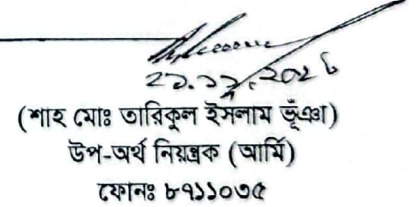 (শাহ মোঃ তারিকুল ইসলাম ভূঁঞা)
উপ-অর্থ নিয়ন্ত্রক (আর্মি)
ফোনঃ ৮৭১১০৩৫